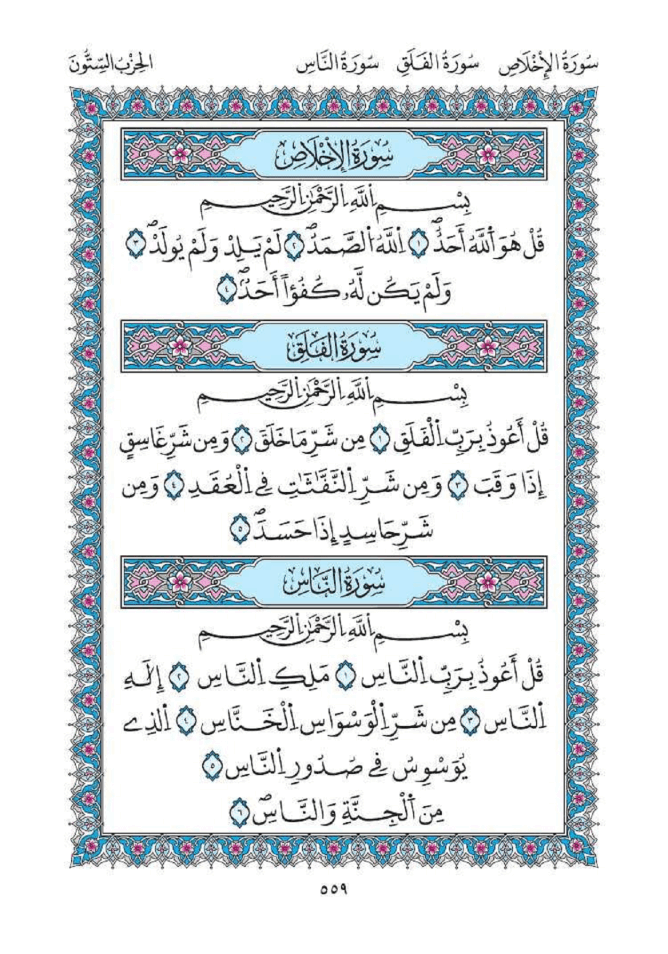 سُورَةُ الإِخْلَاصِ سُورَةُ الفَلَقِ سُورَةُ النَّاسِ الحِزْبُ السِّتُّونَ
سُورَةُ الإِخْلَاصِ
بِسْمِ اِللَّهِ اِلرَّحْمَٰنِ اِلرَّحِيمِ
قُلْ هُوَ اَ۬للَّهُ أَحَدٌ ١ اِ۬للَّهُ اُ۬لصَّمَدُ ٢ لَمْ يَلِدْ وَلَمْ يُولَدْ ٣
وَلَمْ يَكُن لَّهُۥ كُفُؤاً أَحَدٌ ٤
سُورَةُ الفَلَقِ
بِسْمِ اِللَّهِ اِلرَّحْمَٰنِ اِلرَّحِيمِ
قُلْ أَعُوذُ بِرَبِّ اِ۬لْفَلَقِ ١ مِن شَرِّ مَا خَلَقَ ٢ وَمِن شَرِّ غَاسِقٍ
إِذَا وَقَبَ ٣ وَمِن شَرِّ اِ۬لنَّفَّٰثَٰتِ فِے اِ۬لْعُقَدِ ٤ وَمِن
شَرِّ حَاسِدٍ إِذَا حَسَدَ ٥
سُورَةُ النَّاسِ
بِسْمِ اِللَّهِ اِلرَّحْمَٰنِ اِلرَّحِيمِ
قُلْ أَعُوذُ بِرَبِّ اِ۬لنَّاسِ ١ مَلِكِ اِ۬لنَّاسِ ٢ إِلَٰهِ
اِ۬لنَّاسِ ٣ مِن شَرِّ اِ۬لْوَسْوَاسِ اِ۬لْخَنَّاسِ ٤ اِ۬لذِے
يُوَسْوِسُ فِے صُدُورِ اِ۬لنَّاسِ ٥
مِنَ اَ۬لْجِنَّةِ وَالنَّاسِ ٦
٥٥٩